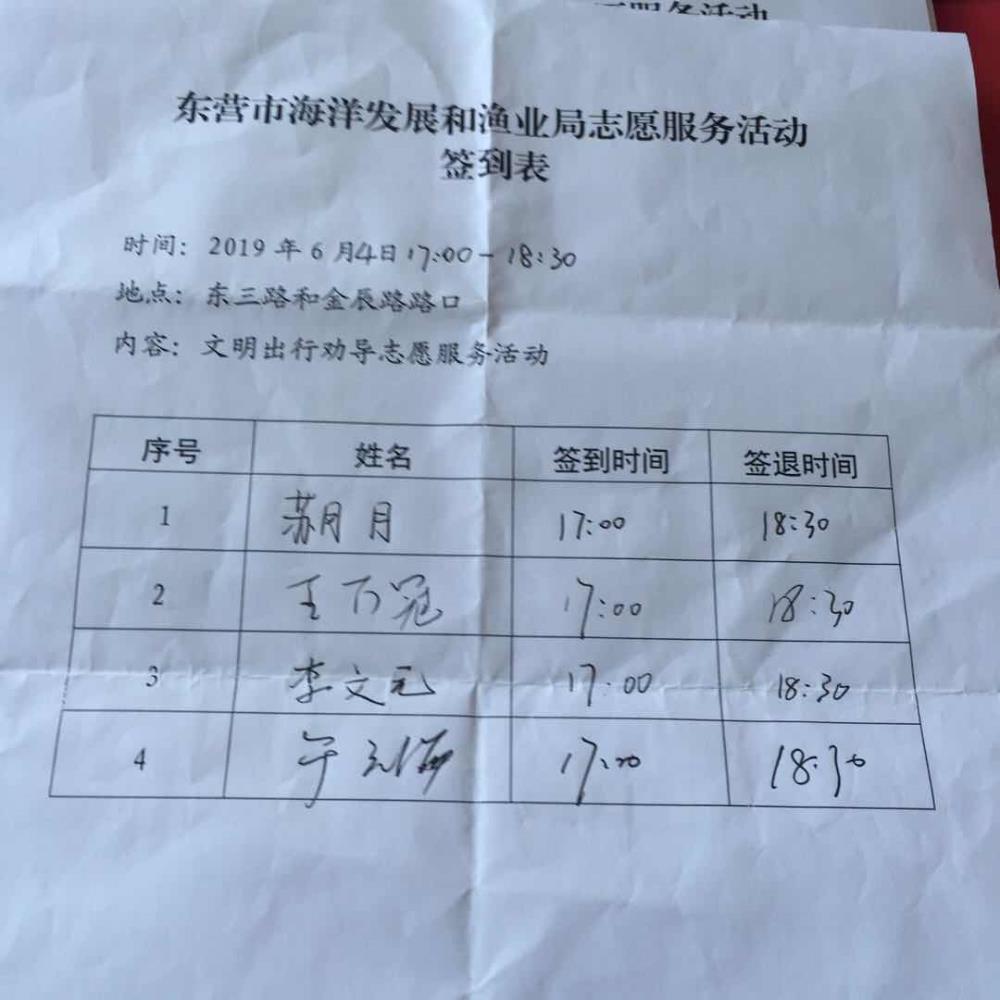 服务活动
东营市海洋发展和渔业局志愿服务活动
签到表
时间：2019 年 6 月4日 17:00 - 18:30
地点：东三路和金辰路路口
内容：文明出行劝导志愿服务活动
序号 姓名 签到时间 签退时间
1 苏月月 17:00 18:30
2 王万冠 17:00 18:30
3 李文元 17:00 18:30
4 17:00 18:30